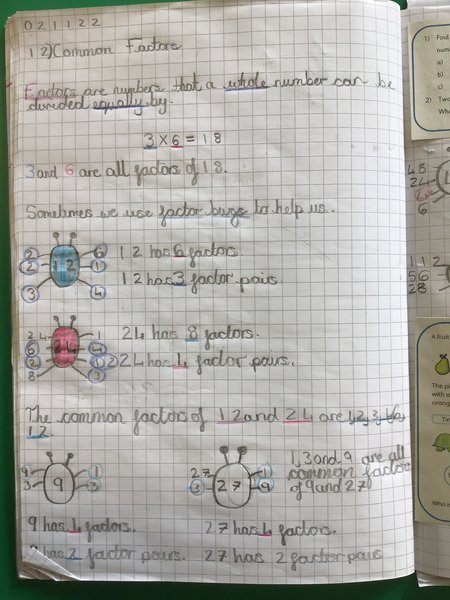 02 11 22
12) Common Factors
Factors are numbers that a whole number can be
divided equally by.
3 x 6 = 18
3 and 6 are all factors of 18.
Sometimes we use factor bugs to help us.
12 has 6 factors.
12 has 3 factor pairs.
2 6
2 12 1
3 4
24 has 8 factors.
24 has 4 factor pairs.
24 1
6 24 4
2 12
8 3
The common factors of 12 and 24 are 1, 2, 3, 4, 6,
12.
9 1
3 9 3
27 1
3 27 9
1, 3 and 9 are all
common factors
of 9 and 27
9 has 4 factors.
27 has 4 factors.
has 2 factor pairs.
27 has 2 factor pairs
1) Find
num
a)
b)
c)
2) Two
48
24
6
112
56
28
A fruit
The pi
with
orang
Who i